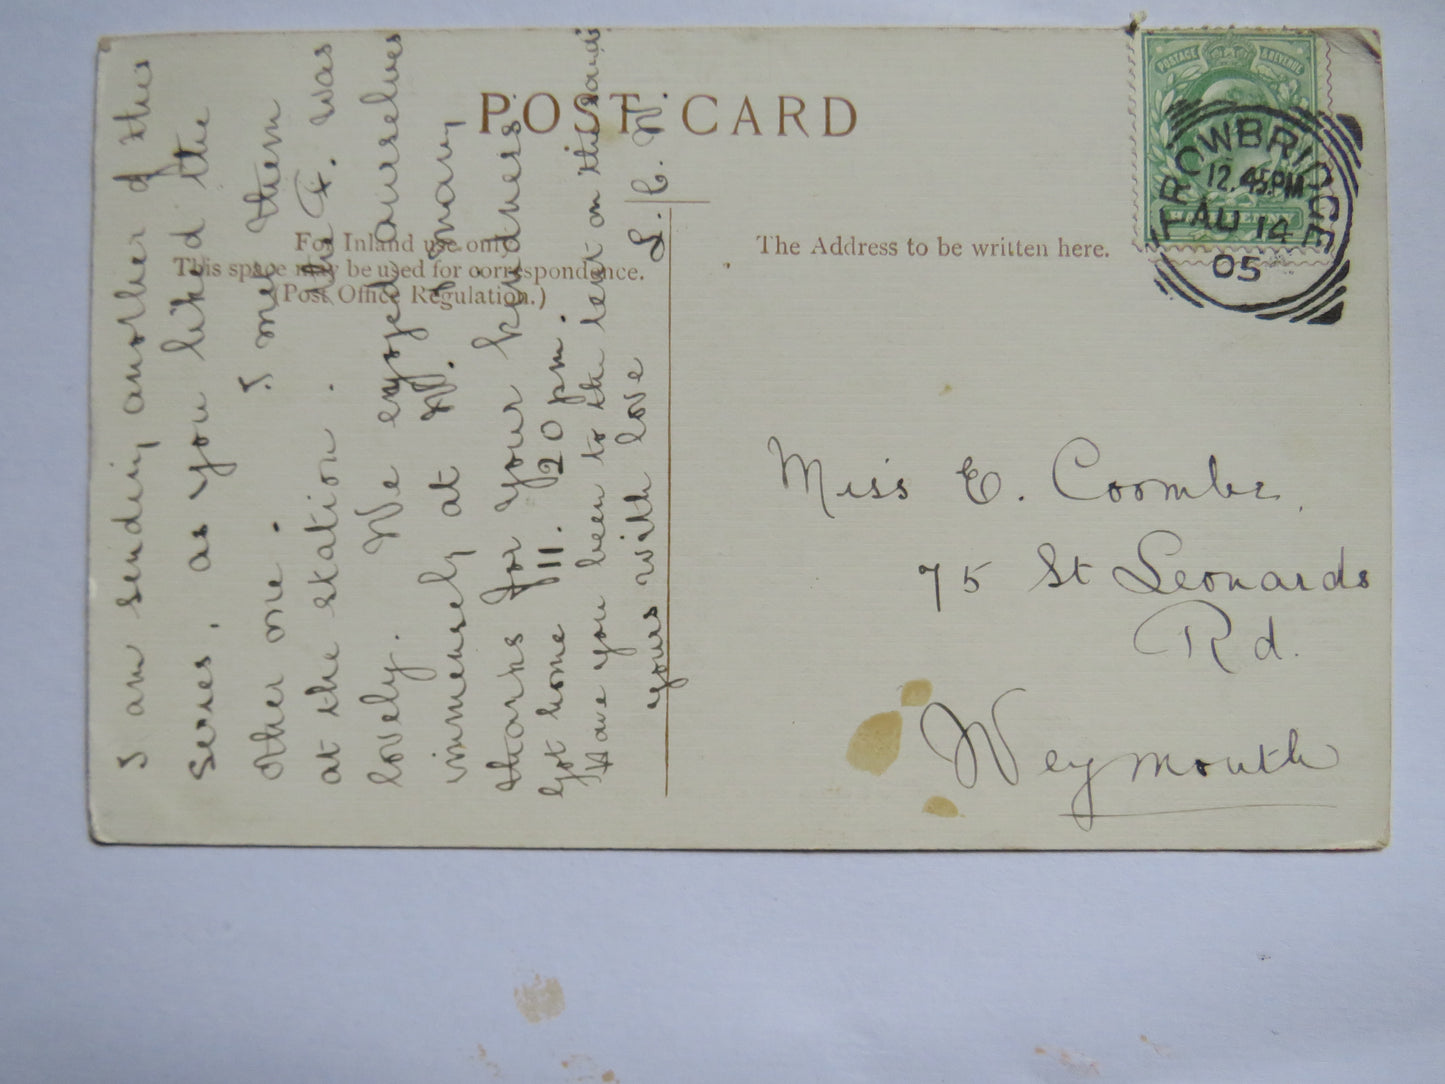 POST CARD
POSTAGE & REVENUE
TROWBRIDGE
12.45PM
AU 14
05
For Inland use only.
This space may be used for correspondence.
(Post Office Regulation.)
The Address to be written here.
I am sending another of this
series, as you liked the
other one. I met them
at the station. the F. was
lovely. We enjoyed ourselves
immensely at W. & many
thanks for your kindness.
Got home 11.20 pm.
Have you been to the tent on the sands
yours with love
L. C. W.
Miss E. Coombs,
75 St Leonards
Rd.
Weymouth